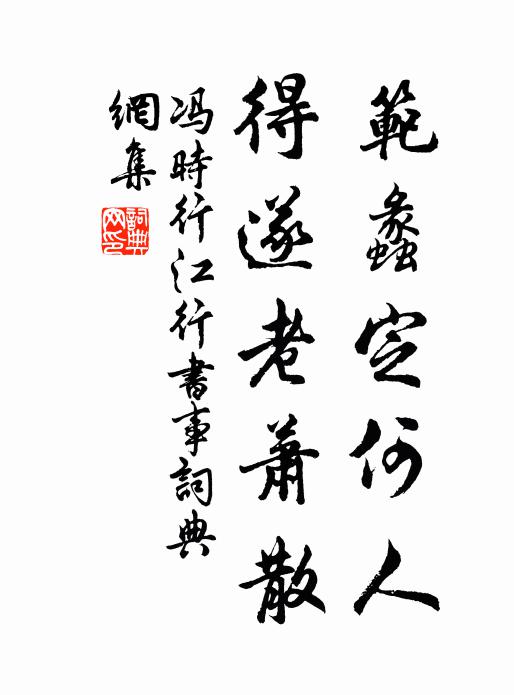 範蠡定何人
得遂老蕭散
冯時行江行書事詞典
網集
詞典
网印